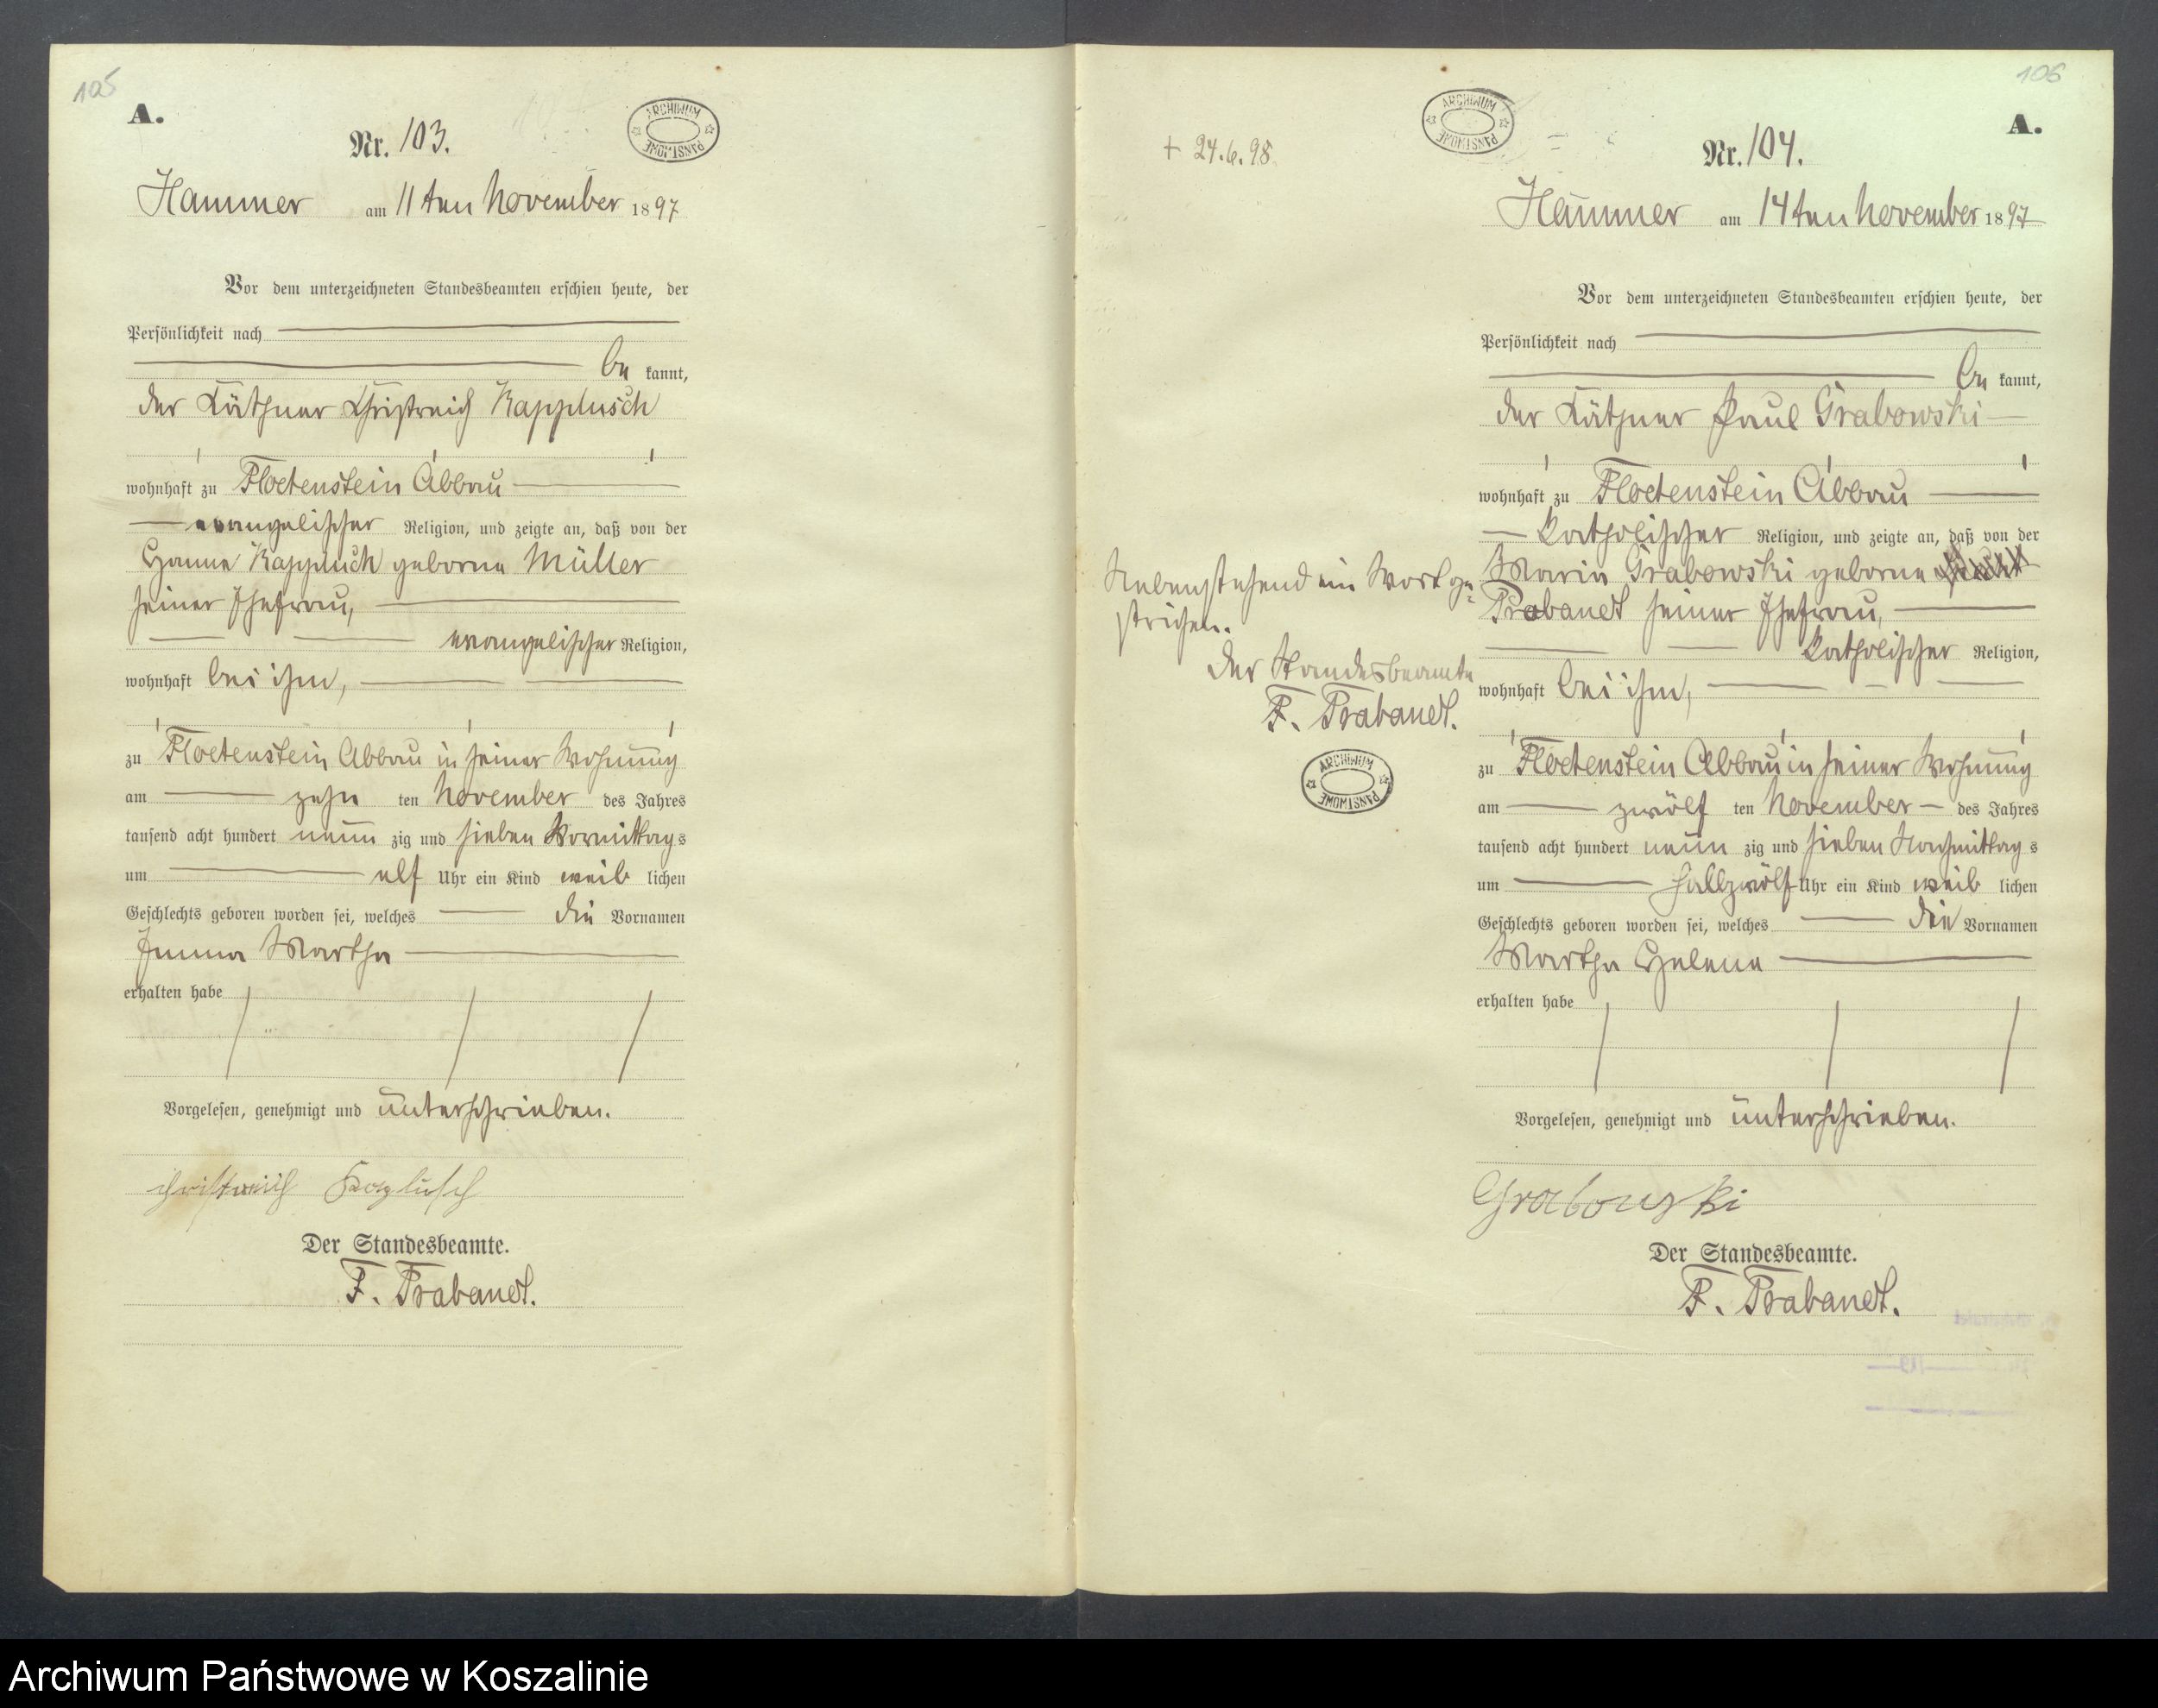 105
A.
ARCHIWUM PAŃSTWOWE
Nr. 103.
Hammer am 11ten November 1897
Vor dem unterzeichneten Standesbeamten erschien heute, der
Persönlichkeit nach
be kannt,
der Käthner Christreich Kapplusch
wohnhaft zu Floetenstein Abbau
evangelischer Religion, und zeigte an, daß von der
Hanne Kappluch geborne Müller
seiner Ehefrau,
evangelischer Religion,
wohnhaft bei ihm,
zu Floetenstein Abbau in seiner Wohnung
am zehn ten November des Jahres
tausend acht hundert neun zig und sieben Vormittags
um elf Uhr ein Kind weib lichen
Geschlechts geboren worden sei, welches die Vornamen
Emma Martha
erhalten habe
Vorgelesen, genehmigt und unterschrieben.
christreich Kaplusch
Der Standesbeamte.
F. Trabandt.
106
A.
ARCHIWUM PAŃSTWOWE
+ 24.6.98
Nr. 104.
Hammer am 14ten November 1897
Vor dem unterzeichneten Standesbeamten erschien heute, der
Persönlichkeit nach
be kannt,
der Käthner Paul Grabowski
wohnhaft zu Floetenstein Abbau
katholischer Religion, und zeigte an, daß von der
Maria Grabowski geborne
Prabandt seiner Ehefrau,
katholischer Religion,
wohnhaft bei ihm,
zu Floetenstein Abbau in seiner Wohnung
am zwölf ten November des Jahres
tausend acht hundert neun zig und sieben Nachmittags
um halbzwölf Uhr ein Kind weib lichen
Geschlechts geboren worden sei, welches die Vornamen
Martha Helene
erhalten habe
Vorgelesen, genehmigt und unterschrieben.
Grabowski
Der Standesbeamte.
F. Trabandt.
Nebenstehend ein Wort ge=
strichen.
Der Standesbeamte
F. Trabandt.
ARCHIWUM PAŃSTWOWE
Archiwum Państwowe w Koszalinie